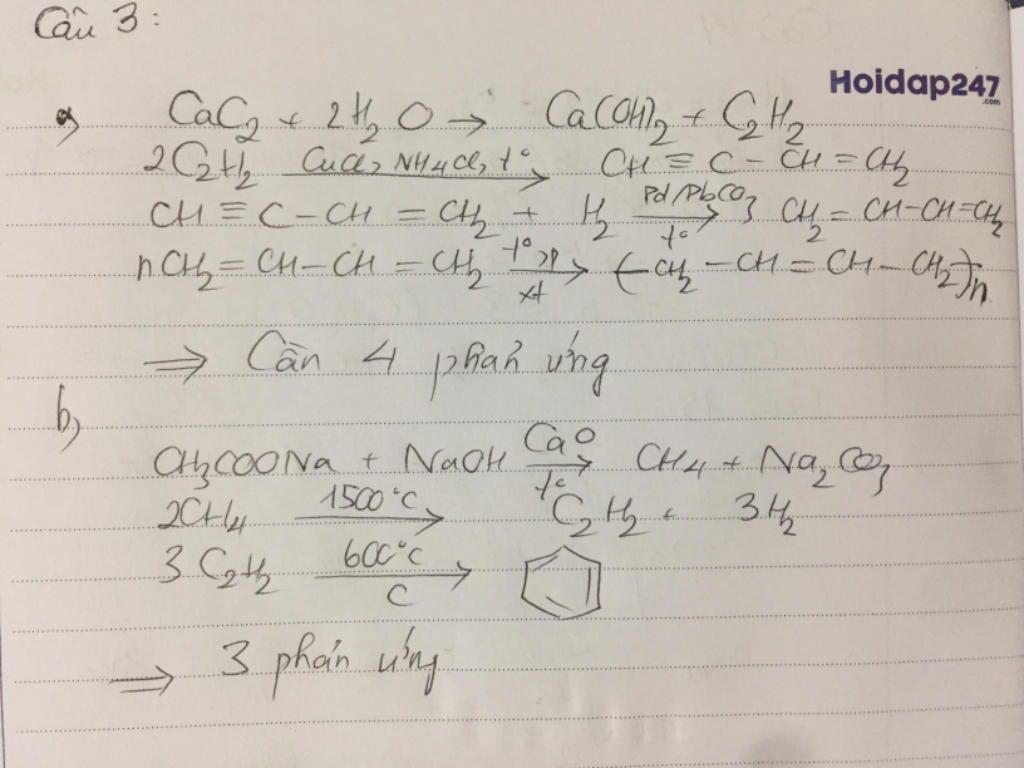 Câu 3:
Hoidap247
.com
a) CaC₂ + 2H₂O → Ca(OH)₂ + C₂H₂
2C₂H₂ CuCl, NH₄Cl, t° → CH ≡ C - CH = CH₂
CH ≡ C - CH = CH₂ + H₂ Pd/PbCO₃ t° → CH₂ = CH-CH=CH₂
nCH₂ = CH - CH = CH₂ t°, p xt → (-CH₂ - CH = CH - CH₂-)n
⇒ Cần 4 phản ứng
b)
CH₃COONa + NaOH CaO t° → CH₄ + Na₂CO₃
2CH₄ 1500°C → C₂H₂ + 3H₂
3C₂H₂ 600°C C →
⇒ 3 phản ứng